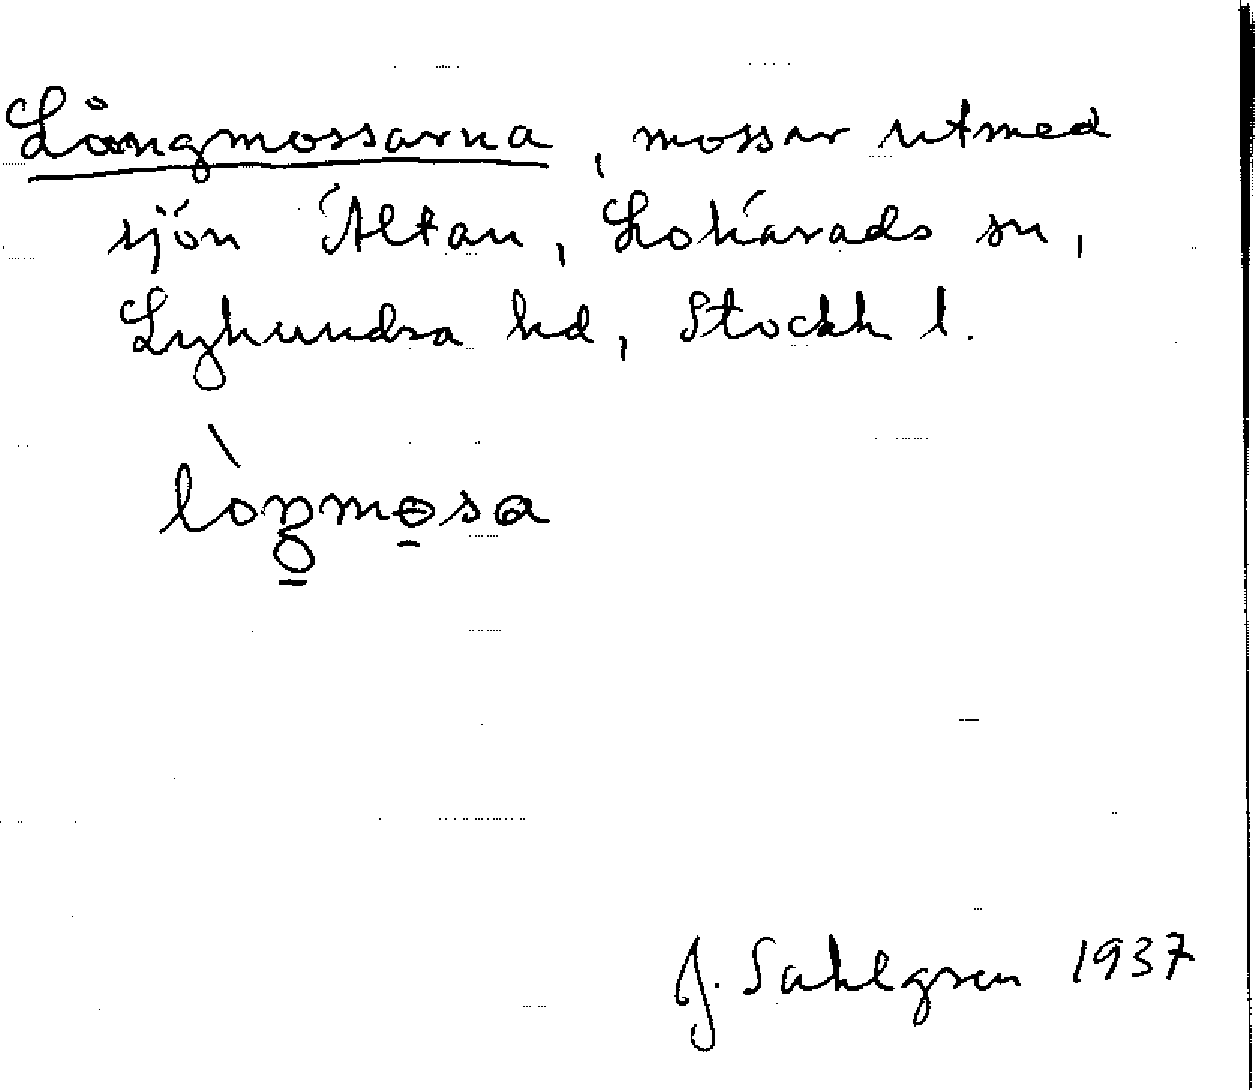 Långmossarna, mossar utmed
sjön Ältan, Lohärads sn,
Lyhundra hd, Stockh l.
J. Sahlgren 1937